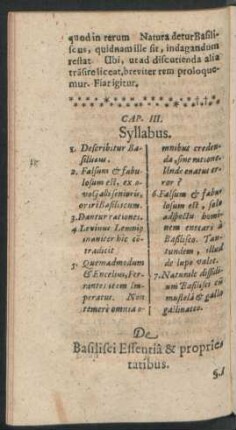 quod in rerum Natura detur Basili-
scus, quidnam ille sit, indagandum
restat Ubi, ut ad discutienda alia
trãsire liceat, breviter rem proloque-
mur. Fiat igitur.
CAP. III.
Syllabus.
1. Describitur Ba-
siliscus.
2. Falsum & fabu-
losum est, ex o-
vo
oriri Basiliscum.
3. Dantur rationes.
4. Levinus Lemnig
inaniter hic cõ-
tradicit
5. Quemadmodum
& Encelius, Fer-
rantes item Im-
peratus. Non
temerè omnia o-
mnibus creden-
da, sine ratione.
Unde onatus er-
ror?
6. Falsum & fabu-
losum est, solo
adspectu homi-
nem enecari à
Basilisco. Tan-
tundem, illud
de lupo valet.
7. Naturale dissidi-
um Basilisci cũ
mustelâ & gallo
gallinaceo.
De
Basilisci Essentiâ & proprie-
tatibus.
§.1